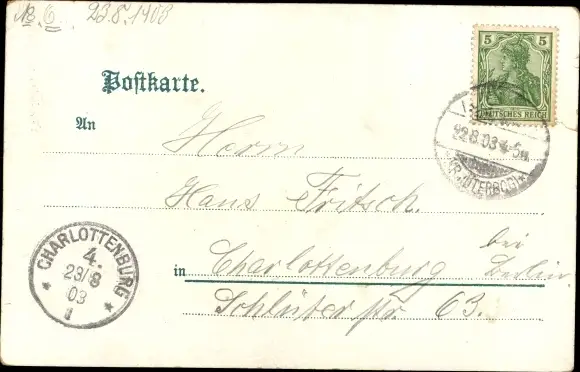 № 6 23.8.1903
Postkarte.
5 5
DEUTSCHES REICH
22.8.03 4-5N
(KR. JÜTERBOG)
An
Herrn
Hans Fritsch.
in Charlottenburg bei Berlin.
Schlüterstr. 63.
CHARLOTTENBURG
4.
23/8
03